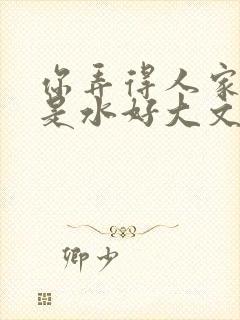 你弄得人家
是水好大文
卿少